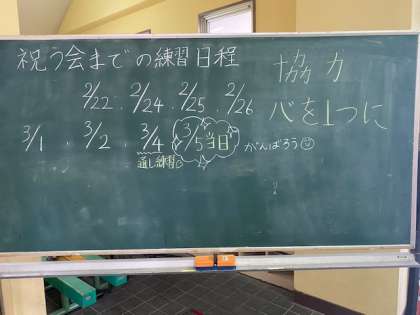 祝う会までの練習日程
協力
心を1つに
2/22．2/24．2/25．2/26
3/1．3/2．3/4 3/5当日 がんばろう☺
通し練習